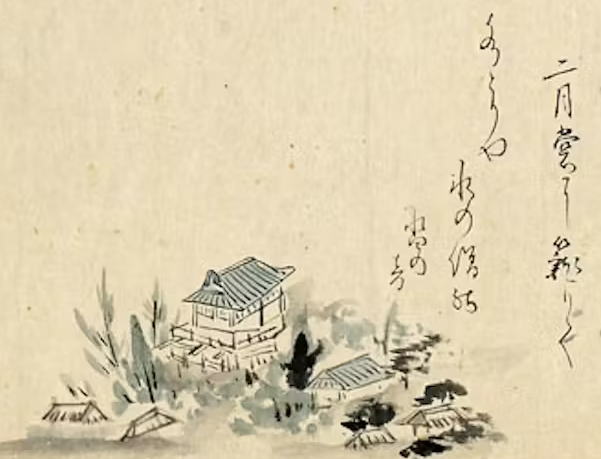 二月堂に籠りて
水とりや
氷の僧の
沓の音